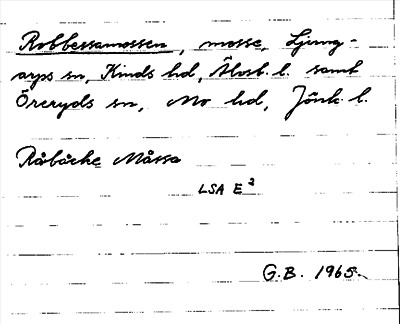 Robbessamossen, mosse, Ljung-
arps sn, Kinds hd, Älvsb. l. samt
Öreryds sn, Mo hd, Jönk. l.
Råbäcke Måssa
LSA E²
G.B. 1965.